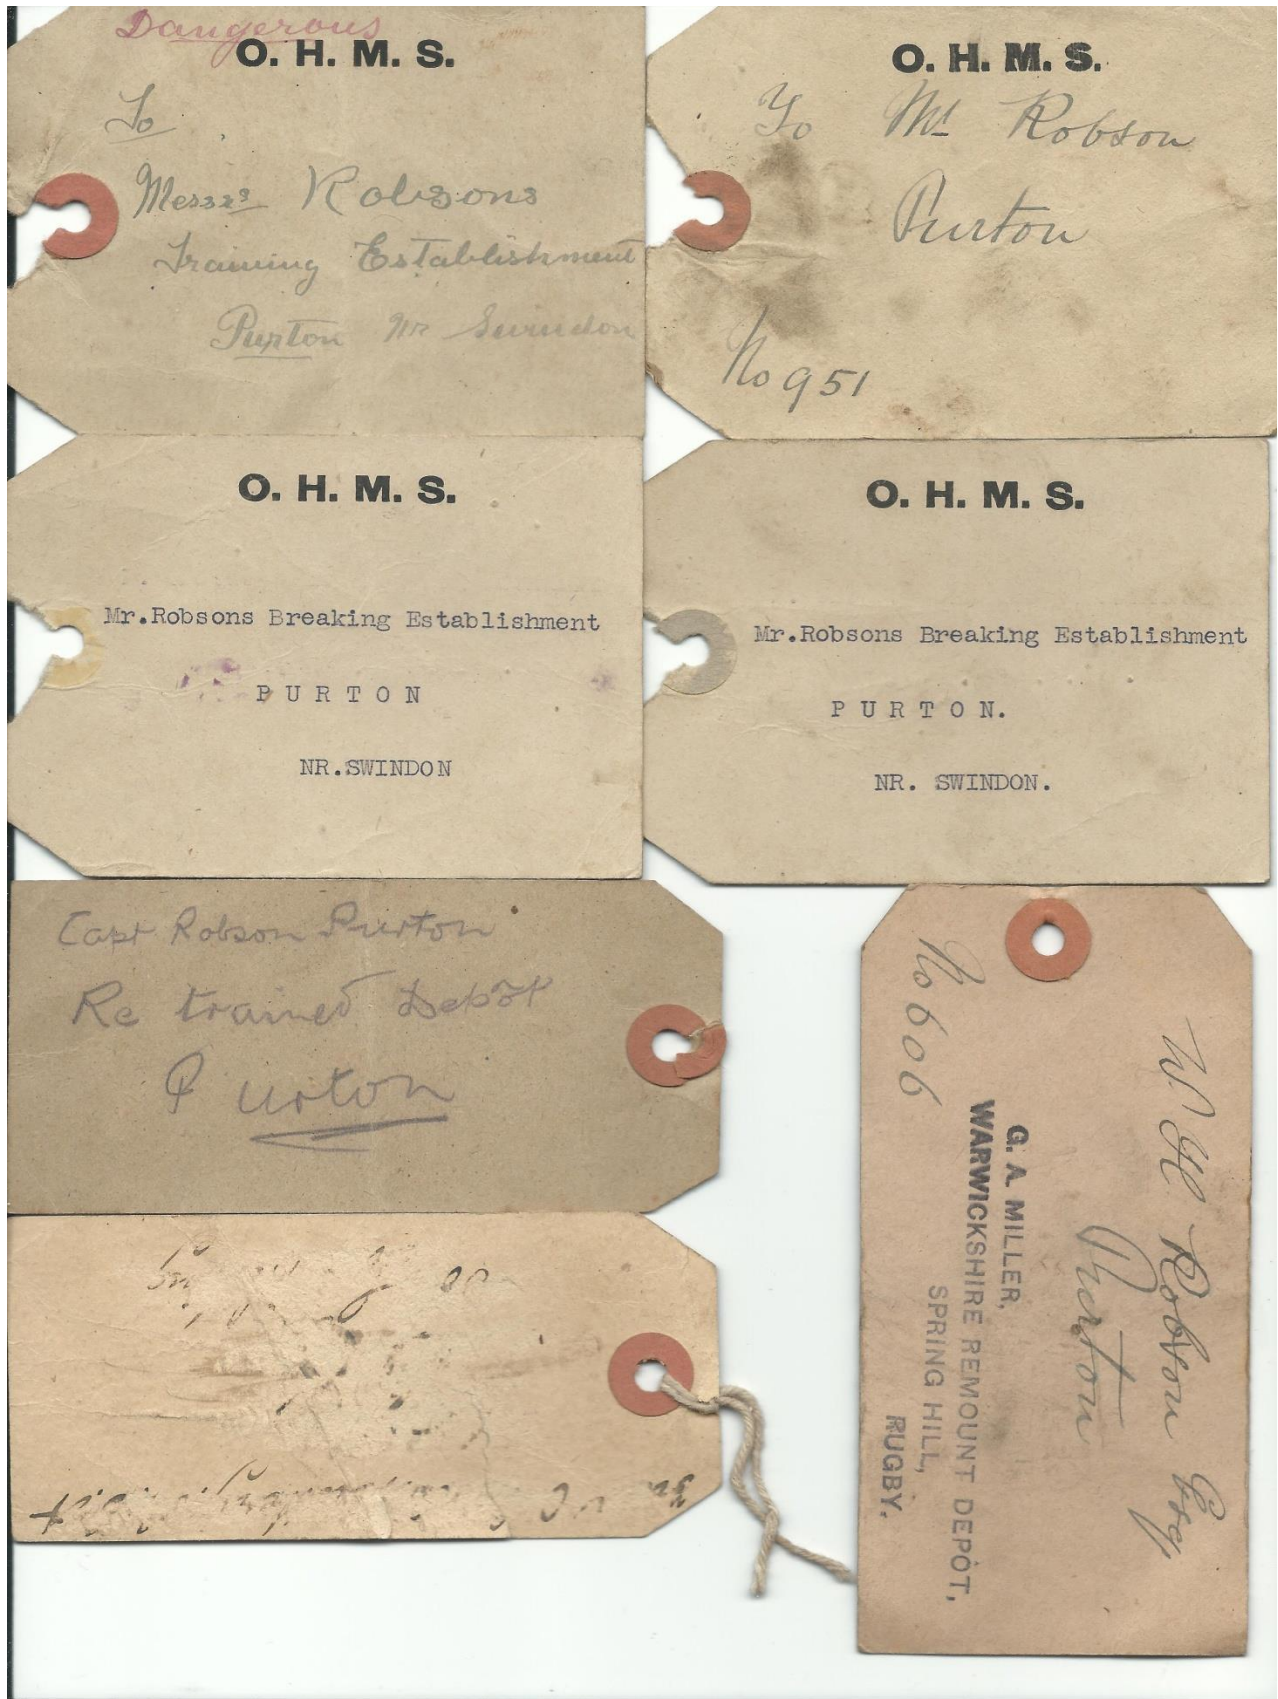 Dangerous
O. H. M. S.
To
Messrs Robsons
Training Establishment
Purton Nr Swindon
O. H. M. S.
To Mr Robson
Purton
No 951
O. H. M. S.
Mr.Robsons Breaking Establishment
PURTON
NR.SWINDON
O. H. M. S.
Mr.Robsons Breaking Establishment
PURTON.
NR. SWINDON.
Capt Robson Purton
Re trained Depôt
Purton
W H Robson Esq
Purton
G. A. MILLER,
WARWICKSHIRE REMOUNT DEPÔT,
SPRING HILL,
RUGBY.
No 606